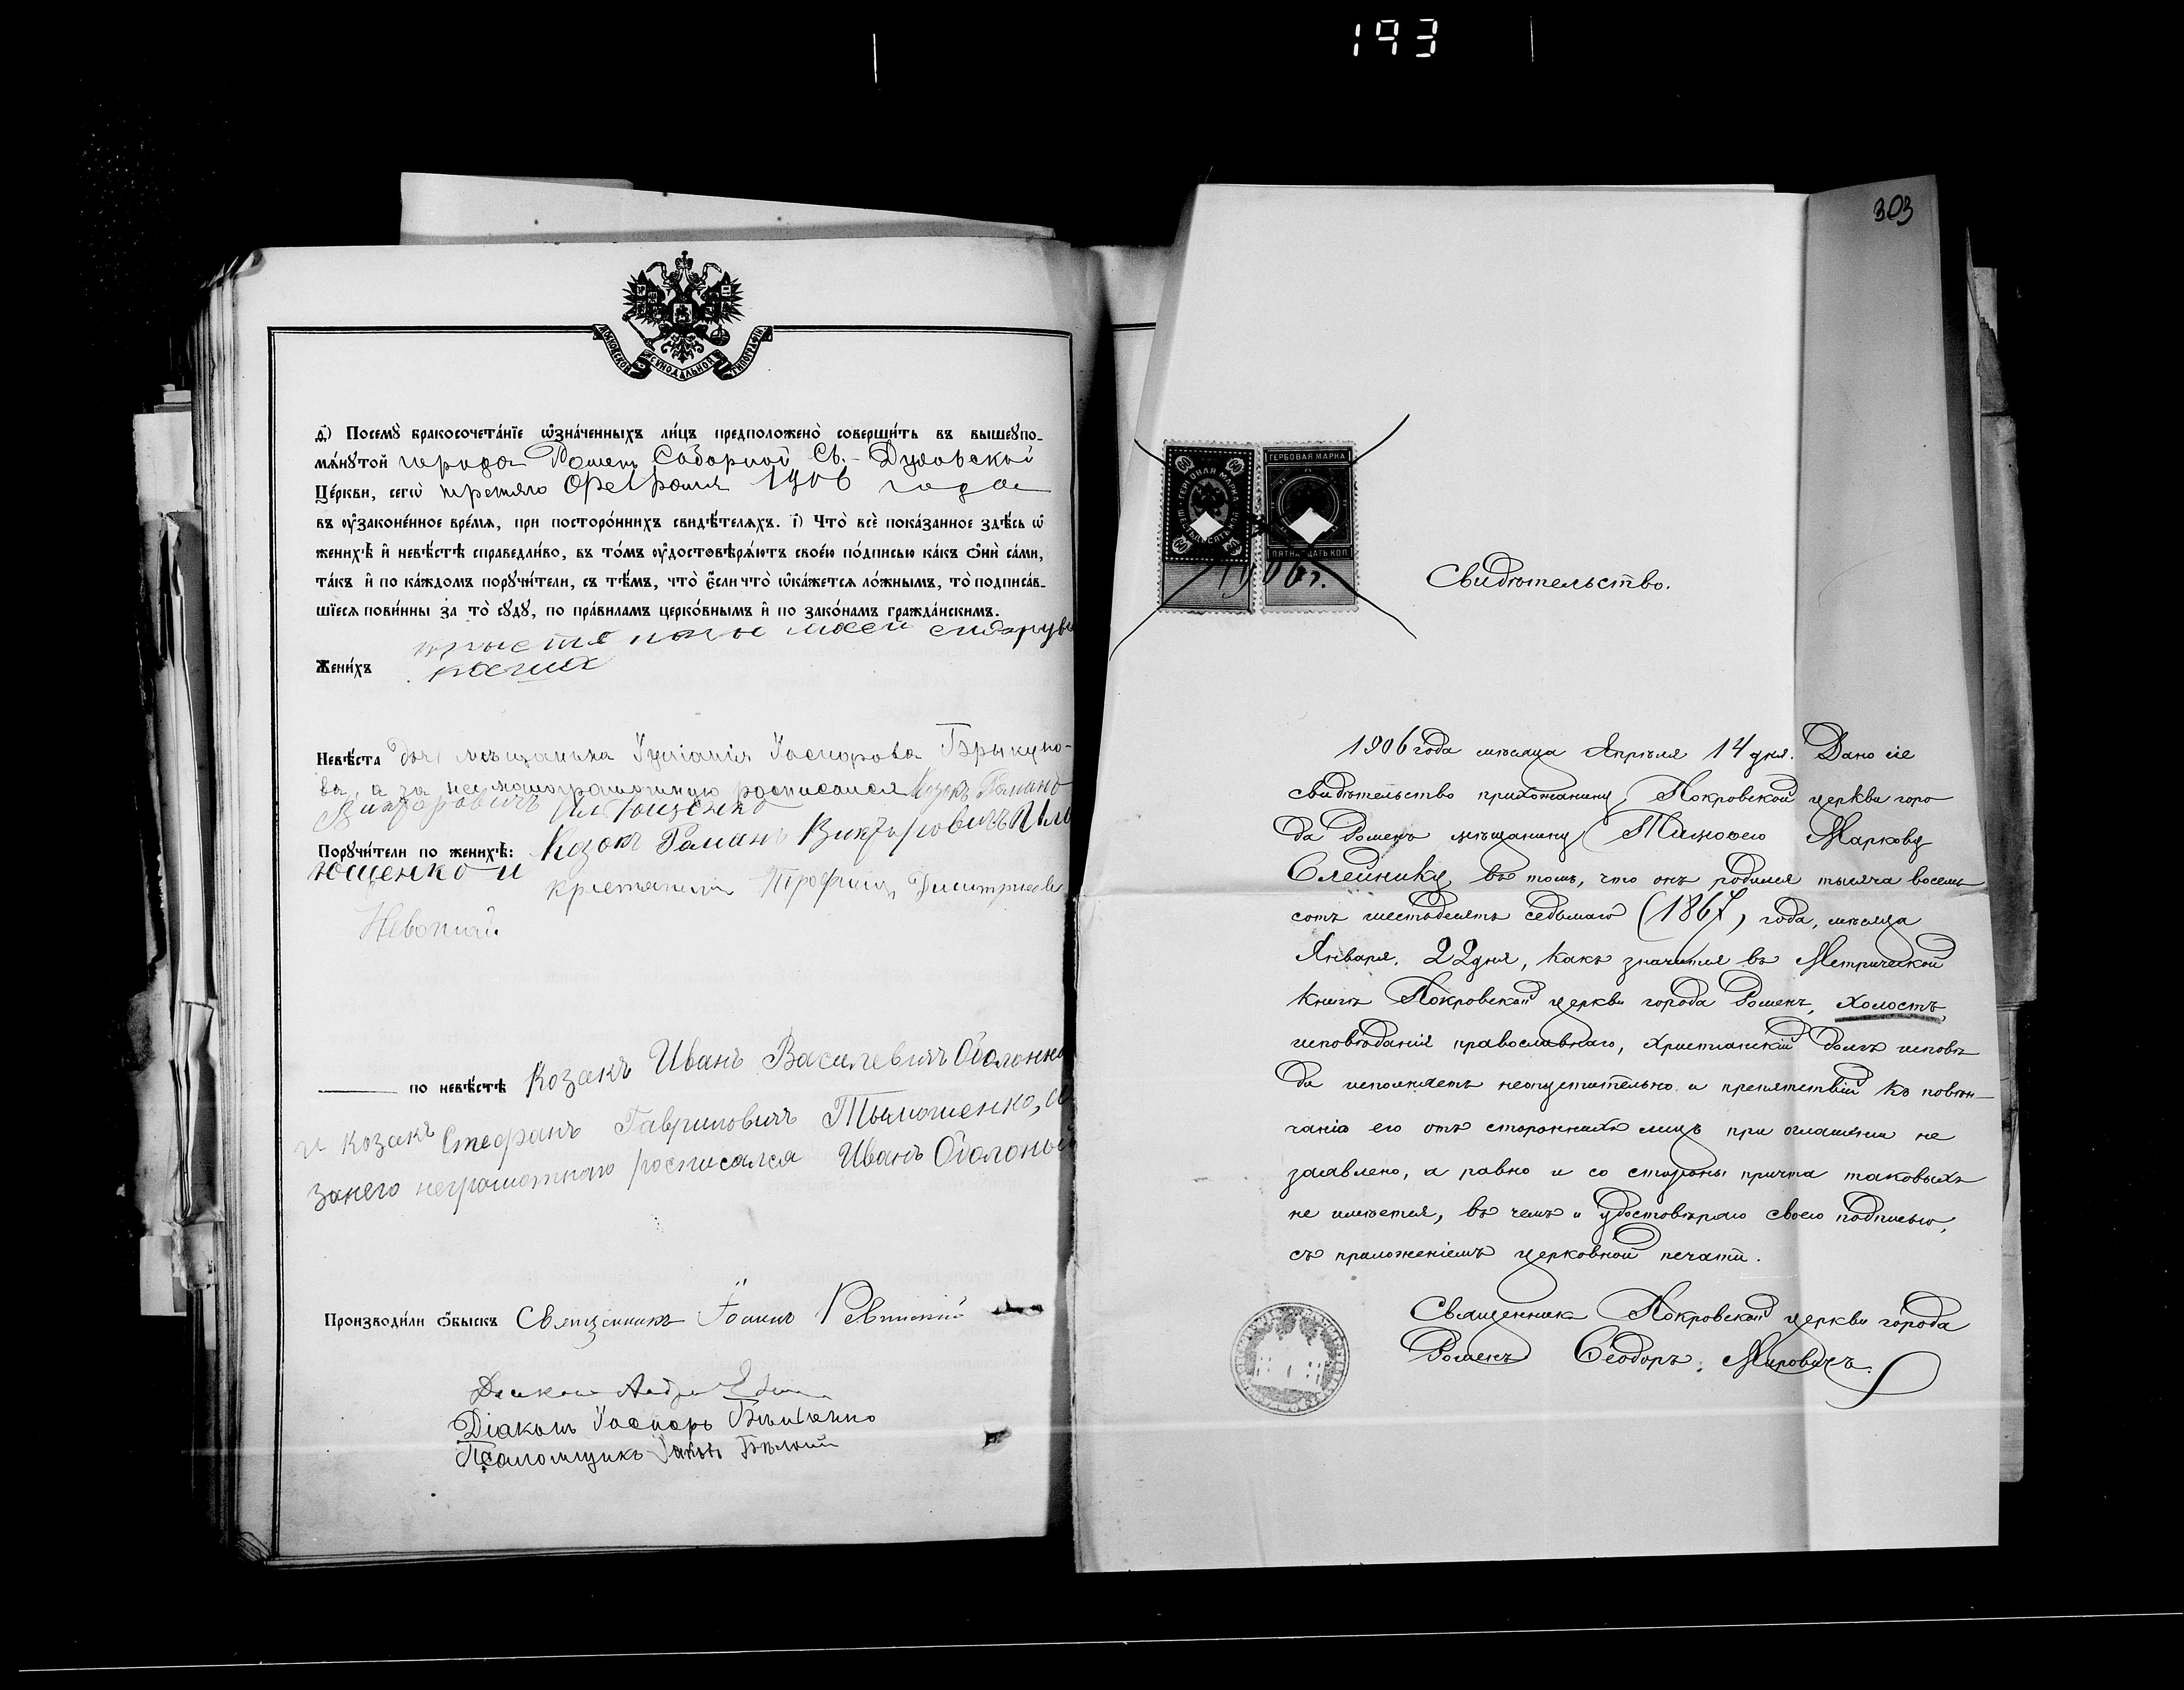 193
303
МОСКОВСКОЙ СѴНОДАЛЬНОЙ ТИПОГРАФІИ
д҃) Посемꙋ̀ бракосочета́нїе ѡ҆зна́ченныхъ ли́цъ предположено̀ соверши́ть въ вышеꙋпо-
мѧ́нꙋтой города Роменъ Соборной Св.-Духовской
Це́ркви, сегѡ̀ третяго 1906 года
въ ᲂу҆законе́нное вре́мѧ, при посторо́ннихъ свидѣ́телѧхъ. і҃) Что̀ всѐ пока́занное здѣ́сь ѡ҆
женихѣ̀ и҆ невѣ́стѣ справедли́во, въ то́мъ ᲂу҆достовѣрѧ́ютъ свое́ю по́дписью ка́къ ѻ҆нѝ са́ми,
та́къ и҆ по ка́ждомъ порꙋчи́тели, съ тѣ́мъ, что̀ є҆́сли что̀ ѡ҆ка́жетсѧ ло́жнымъ, то̀ подписа́в-
шїесѧ пови́нны за то̀ сꙋдꙋ̀, по пра́виламъ церко́внымъ и҆ по зако́намъ гражда́нскимъ.
Жени́хъ
Невѣ́ста дочь мѣщанина
ва, а за нее росписался Козакъ Романъ
Викторовичъ Ильющенко
Порꙋчи́тели по женихѣ̀: Козакъ Романъ Викторовичъ Иль
ющенко и
крестянинъ Трофимъ Димитріевъ
по невѣ́стѣ Козакъ Иванъ Василевичъ
и козакъ Стефанъ Гавриловичъ Тымошенко, а
занего неграмотнаго росписался Иванъ
Производи́ли ѻ҆́быскъ Священникъ Іоаннъ
Діаконъ
Діаконъ
Псаломщикъ
ГЕРБОВАЯ МАРКА
ШЕСТЬДЕСЯТЪ КОП
60
ГЕРБОВАЯ МАРКА
ПЯТНАДЦАТЬ КОП.
1906 г.
Свидѣтельство.
1906 года мѣсяца Апрѣля 14 дня. Дано сіе
свидѣтельство прихожанину Покровской церкви горо
да Роменъ мѣщанину Тимоѳею Маркову
Олейнику въ томъ, что онъ родился тысяча восемь
сотъ шестьдесятъ седьмаго (1867) года, мѣсяца
Января, 22 дня, какъ значится въ Метрической
книгѣ Покровской церкви города Роменъ, холостъ,
исповѣданія православнаго, христіанскій долгъ исповѣ
ди исполняетъ неопустительно и препятствій къ повѣн-
чанію его отъ стороннихъ лицъ при оглашеніи не
заявлено, а равно и со стороны причта таковыхъ
не имѣется, въ чемъ и удостовѣряю своею подписью,
съ приложеніемъ церковной печати.
Священникъ Покровской церкви города
Роменъ Ѳеодоръ Мировичъ.